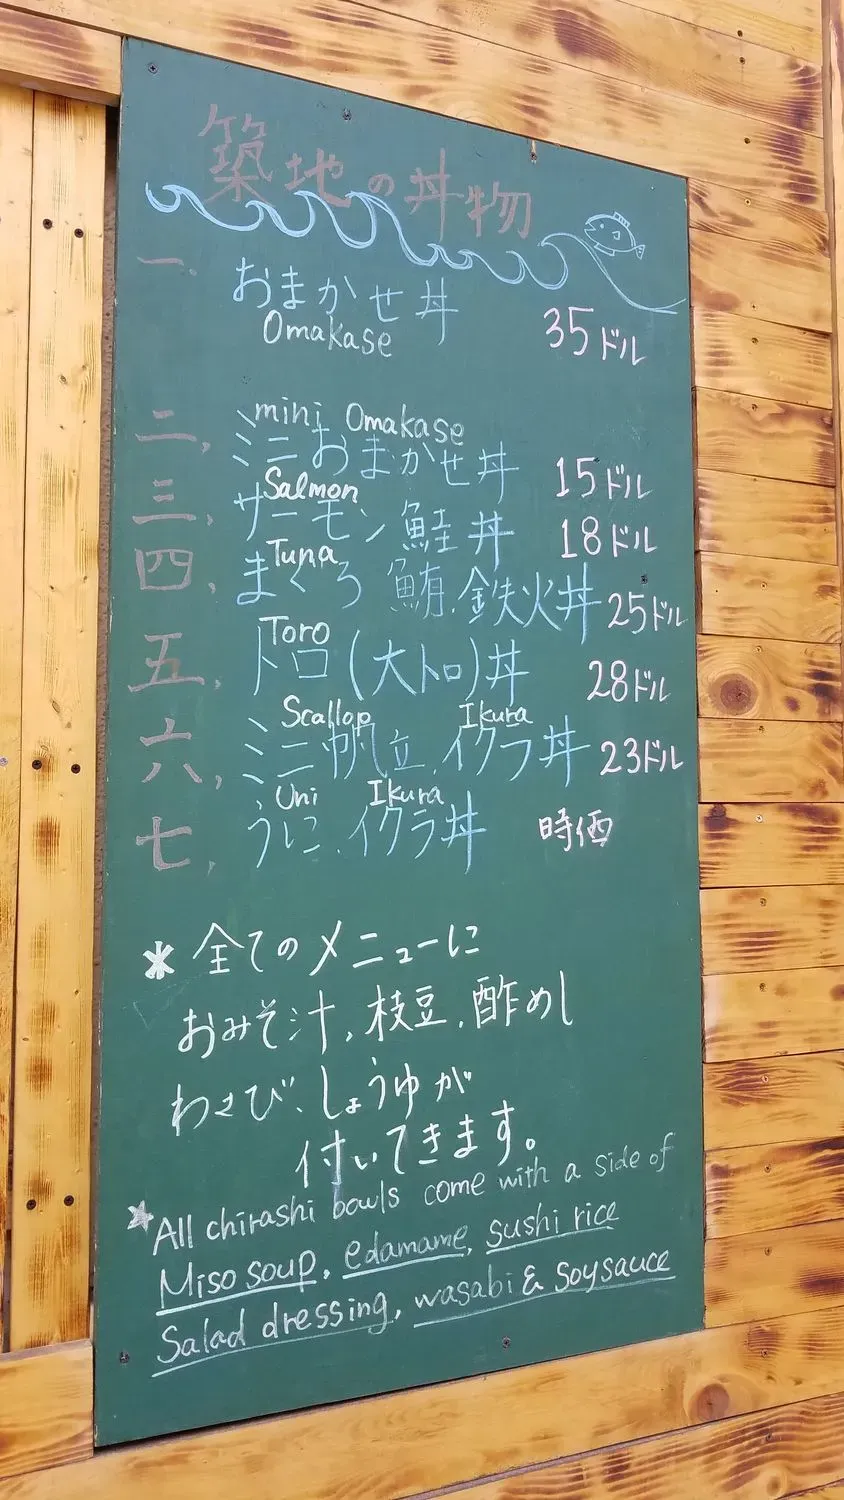 築地の丼物
一、おまかせ丼 35ドル
Omakase
mini Omakase
二、ミニおまかせ丼 15ドル
Salmon
三、サーモン鮭丼 18ドル
Tuna
四、まぐろ 鮪、鉄火丼 25ドル
Toro
五、トロ(大トロ)丼 28ドル
Scallop Ikura
六、ミニ帆立、イクラ丼 23ドル
Uni Ikura
七、うに、イクラ丼 時価
* 全てのメニューに
おみそ汁、枝豆、酢めし
わさび、しょうゆが
付いてきます。
* All chirashi bowls come with a side of
Miso soup, edamame, sushi rice
Salad dressing, wasabi & Soysauce